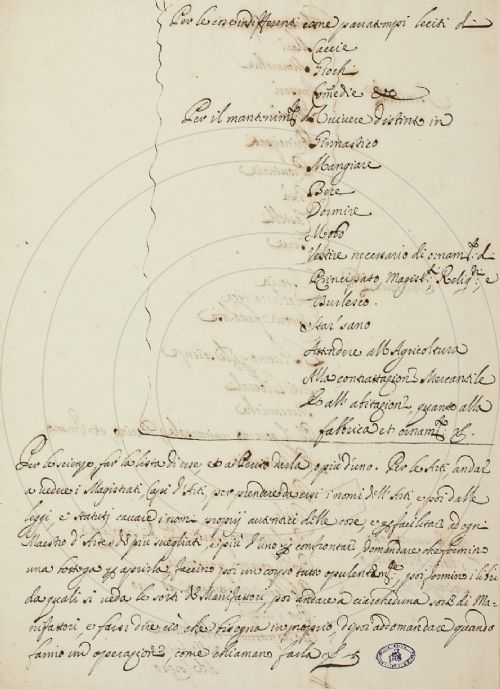 Per le cose indifferenti come passatempi leciti di
Caccie
Giochi
Comedie &c
Per il mantenim.to d vivere distinto in
Ginnastico
Mangiare
Bere
Dormire
Moto
Vestire necessario di ornam.to d
Principato, Magist. Relig. e
Burlesco.
Star sano
Attendere all Agricoltura
Alla contrattazion Mercantile
all abitazion quanto alla
fabbrica et ornam.to
Per le scienze far la lista di esse, et a Perito darla o più d'uno. Per le Arti andar
a vedere i Magistrati, Capi d'Arti, per rinvenire da essi i nomi dell Arti e poi dalle
leggi e statuti cavare i nomi proprij autentici delle cose e facilitar ad ogni
Maestro d'Arte, di più svegliati, e più d'uno confrontar, domandare che fornire
una bottega aprirla, faccino poi un corpo tutto opulent, poi fornino i libri
da quali si veda le sorti de Manifattori, poi andare a ciascheduna sorte di Ma-
nifattori, e farsi dire ciò che bisogna in proprio, di poi addomandare quando
fanno un operazion, come chiamano farla